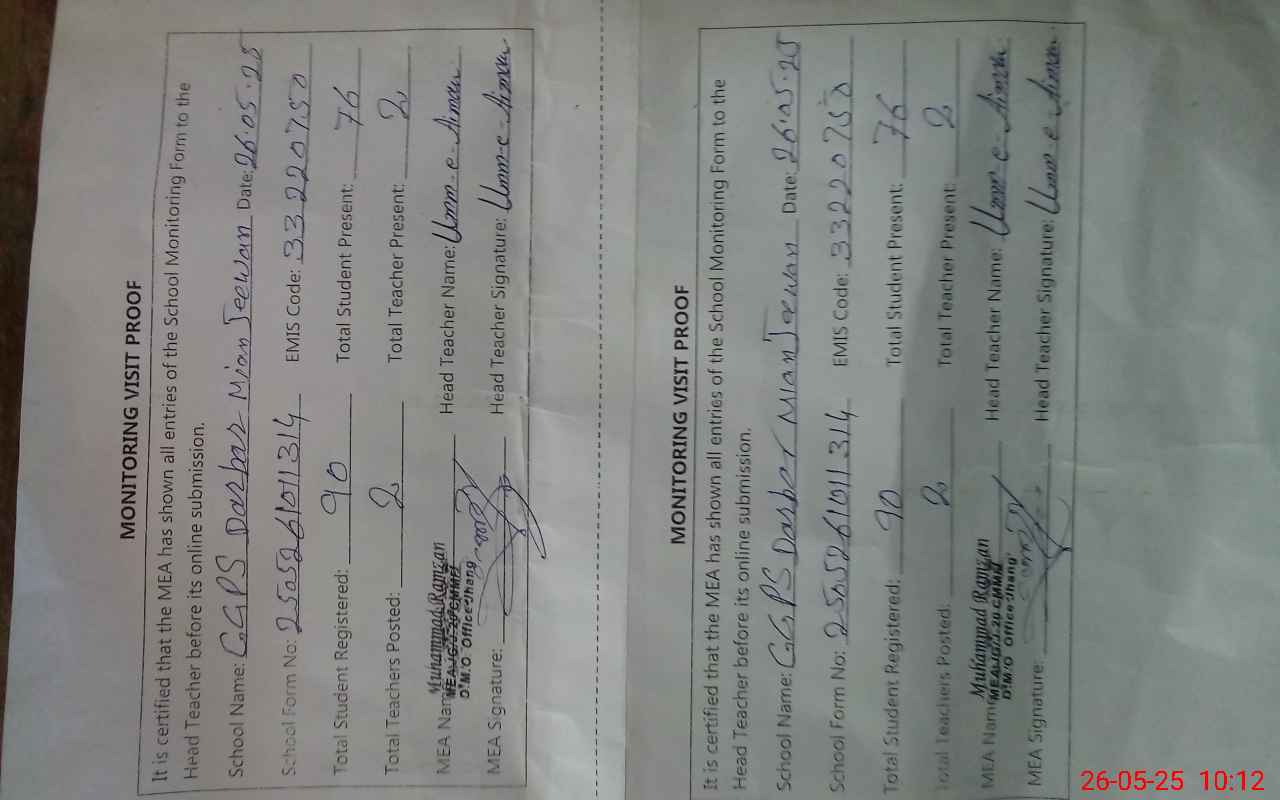 MONITORING VISIT PROOF
It is certified that the MEA has shown all entries of the School Monitoring Form to the
Head Teacher before its online submission.
School Name: GGPS Darbar Mian Jeewan Date: 26.05.25
School Form No: 2505261011314 EMIS Code: 33220750
Total Student Registered: 90 Total Student Present: 76
Total Teachers Posted: 2 Total Teacher Present: 2
MEA Name: Muhammad Ramzan Head Teacher Name: Umm-e-Aiman
D.M.O Office Jhang
MEA Signature: Head Teacher Signature: Umm-e-Aiman
MONITORING VISIT PROOF
It is certified that the MEA has shown all entries of the School Monitoring Form to the
Head Teacher before its online submission.
School Name: GGPS Darbar Mian Jeewan Date: 26.05.25
School Form No: 2505261011314 EMIS Code: 33220750
Total Student Registered: 90 Total Student Present: 76
Total Teachers Posted: 2 Total Teacher Present: 2
MEA Name Muhammad Ramzan Head Teacher Name: Umm-e-Aiman
D.M.O Office Jhang
MEA Signature: Head Teacher Signature: Umm-e-Aiman
26-05-25 10:12